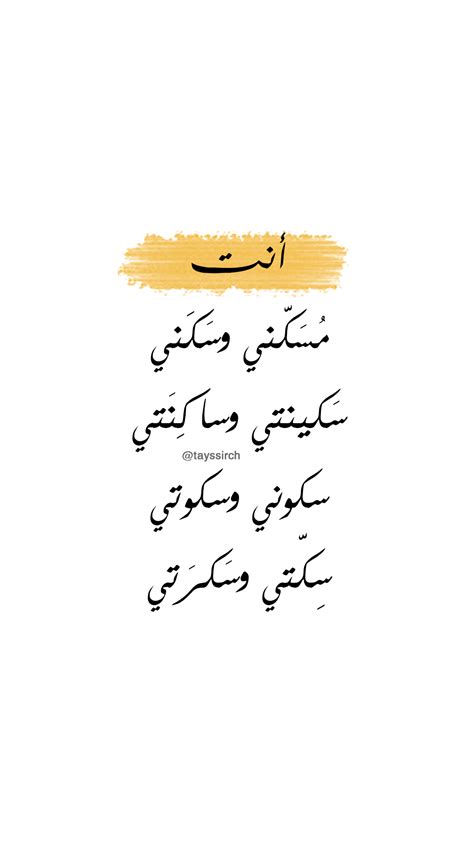 أنت
مُسَكّني وسَكَني
سَكينتي وساكِنَتي
@tayssirch
سكوني وسكوتي
سِكّتي وسَكرَتي